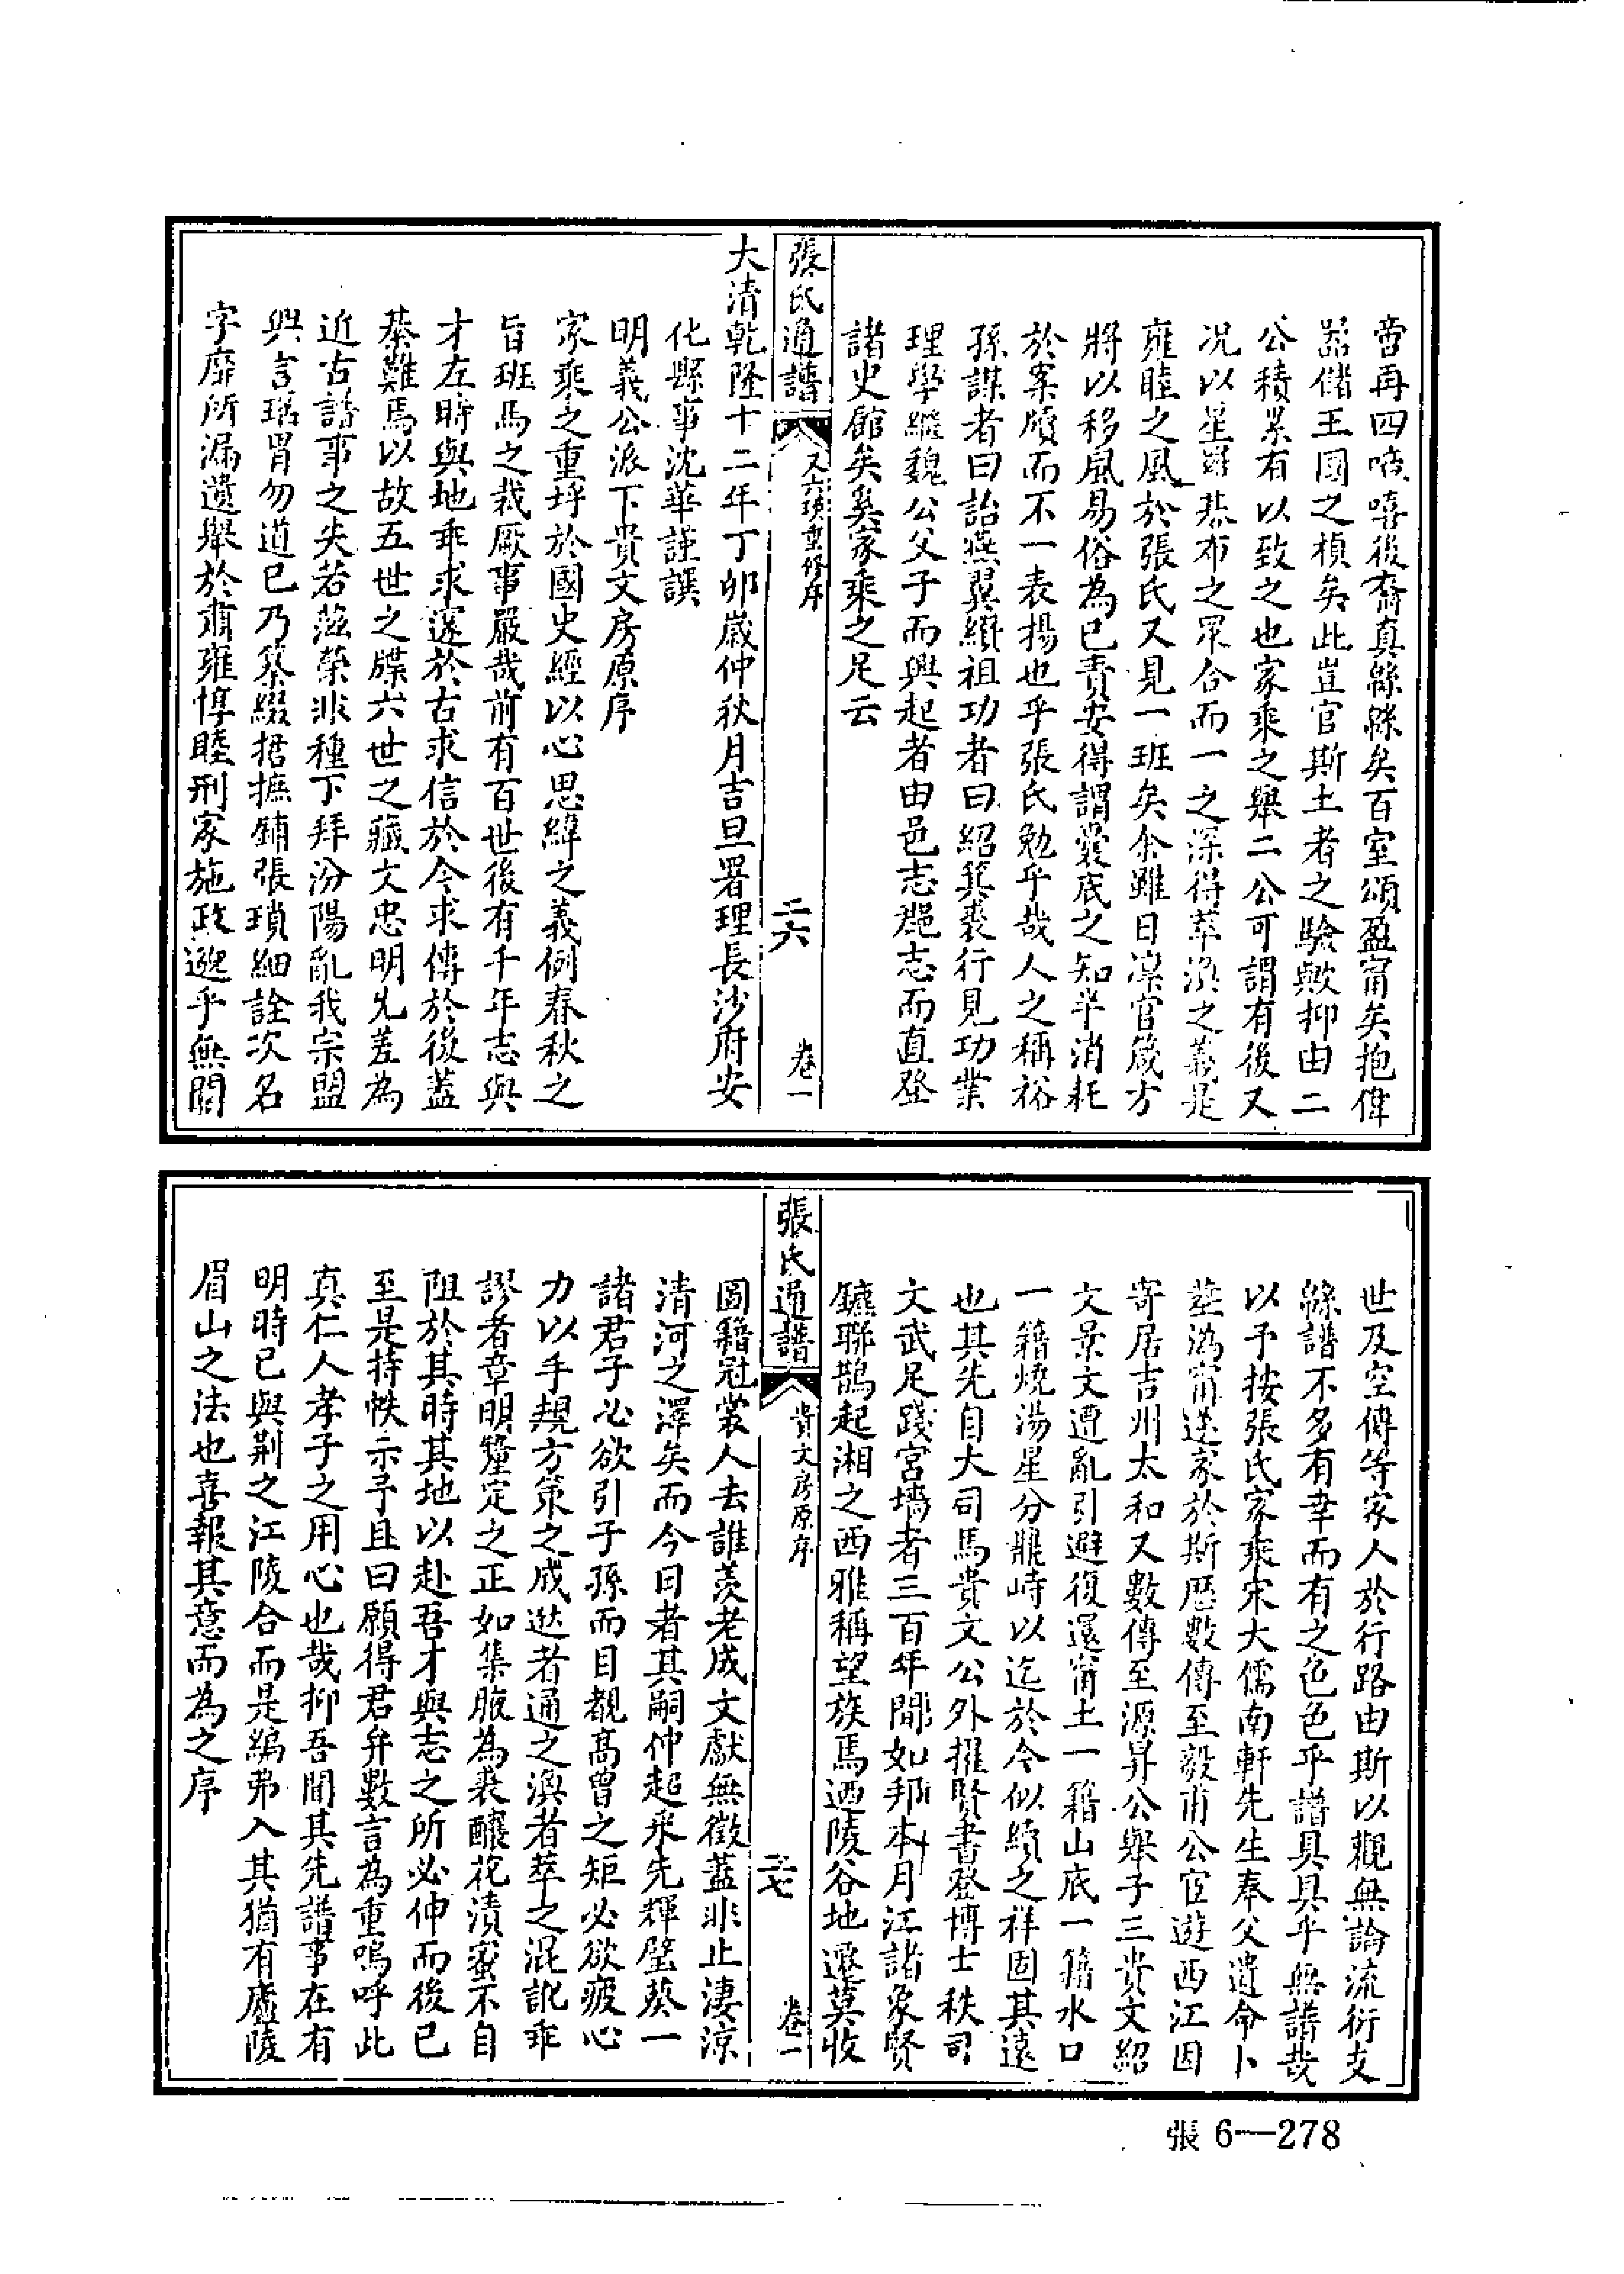 啻再四噫嘻後裔真緜緜矣百室頌盈甯矣抱偉
器儲王國之楨矣此豈官斯土者之驗歟抑由二
公積累有以致之也家乘之舉二公可謂有後又
况以星羅棊布之眾合而一之深得萃渙之義是
雍睦之風於張氏又見一班矣余雖日凜官箴方
將以移風易俗為己責安得謂瓞底之知半消耗
於案牘而不一表揚也乎張氏勉乎哉人之稱裕
孫謀者曰詒燕翼纘祖功者曰紹箕裘行見功業
理學繼魏公父子而興起者由邑志郡志而直登
諸史館矣奚家乘之足云
張氏通譜
又六瑛重修序
二六
卷一
大清乾隆十二年丁卯歲仲秋月吉旦署理長沙府安
化縣事沈華謹譔
明義公派下貴文房原序
家乘之重埒於國史經以心思緯之義例春秋之
旨班馬之裁厥事嚴哉前有百世後有千年志與
才左時與地乖求遂於古求信於今求傳於後蓋
綦難焉以故五世之牒六世之藏文忠明允差為
近古譜事之失若茲榮非種下拜汾陽亂我宗盟
興言琚胃勿道已乃纂綴捃摭鋪張瑣細詮次名
字靡所漏遺舉於肅雍惇睦刑家施政邈乎無關
世及空傳等家人於行路由斯以觀無論流衍支
緜譜不多有幸而有之色色乎譜具具乎無譜哉
以予按張氏家乘宋大儒南軒先生奉父遺命卜
塟溈甯遂家於斯歷數傳至毅甫公宦遊西江因
寄居吉州太和又數傳至源昇公舉子三貴文紹
文景文遭亂引避復還甯土一籍山底一籍水口
一籍燒湯星分鼎峙以迄於今似續之祥固其遠
也其先自大司馬貴文公外擢賢書登博士秩司
文武足踐宮墻者三百年間如邦本月江諸象賢
鑣聯鵲起湘之西雅稱望族焉迺陵谷地遷莫收
張氏通譜
貴文房原序
二七
卷一
圖籍冠裳人去誰羨老成文獻無徵蓋非止淒涼
清河之澤矣而今日者其嗣仲超乘先輝壁葵一
諸君子必欲引子孫而目覩高曾之矩必欲疲心
力以手親方策之成迯者通之渙者萃之混訛乖
謬者章明釐定之正如集腋為裘釀花漬蜜不自
阻於其時其地以赴吾才與志之所必伸而後已
至是持帙示予且曰願得君弁數言為重嗚呼此
真仁人孝子之用心也哉抑吾聞其先譜事在有
明時已與荆之江陵合而是編弗入其猶有廬陵
眉山之法也喜報其意而為之序
張 6—278